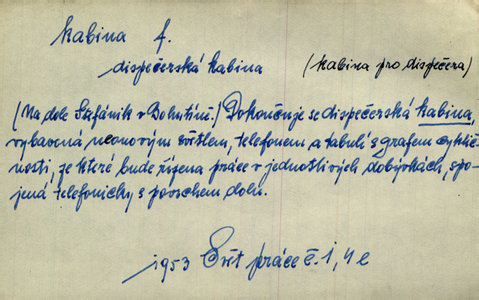 kabina f.
dispečerská kabina
(kabina pro dispečera)
(Na dole Štefánik v Bohutíně.) Dokončuje se dispečerská kabina,
vybavená neonovým světlem, telefonem a tabulí s grafem cyklič-
nosti, ze které bude řízena práce v jednotlivých dobývkách, spo-
jená telefonicky s povrchem dolu.
1953 Svět práce č. 1, 4 e